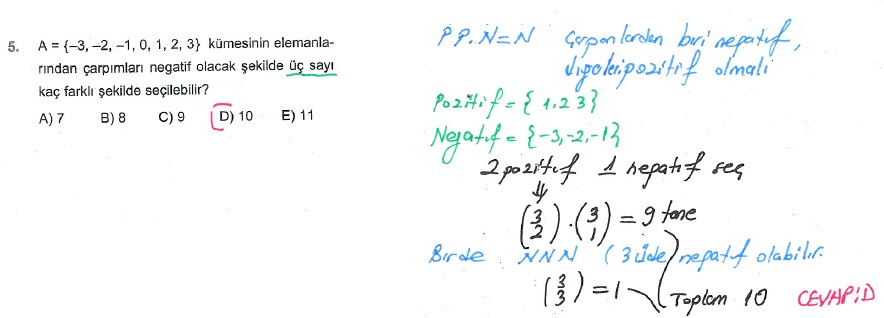 5. A = {–3, –2, –1, 0, 1, 2, 3} kümesinin elemanla-
rından çarpımları negatif olacak şekilde üç sayı
kaç farklı şekilde seçilebilir?
A) 7 B) 8 C) 9 D) 10 E) 11
P.P.N=N Çarpanlardan biri negatif,
diğerleri pozitif olmalı
Pozitif = { 1,2 3}
Negatif = {-3,-2,-1}
2 pozitif 1 negatif seç
(3 2) . (3 1) = 9 tane
Birde NNN ( 3 üde negatif olabilir.
(3 3) = 1 Toplam 10 CEVAP:D